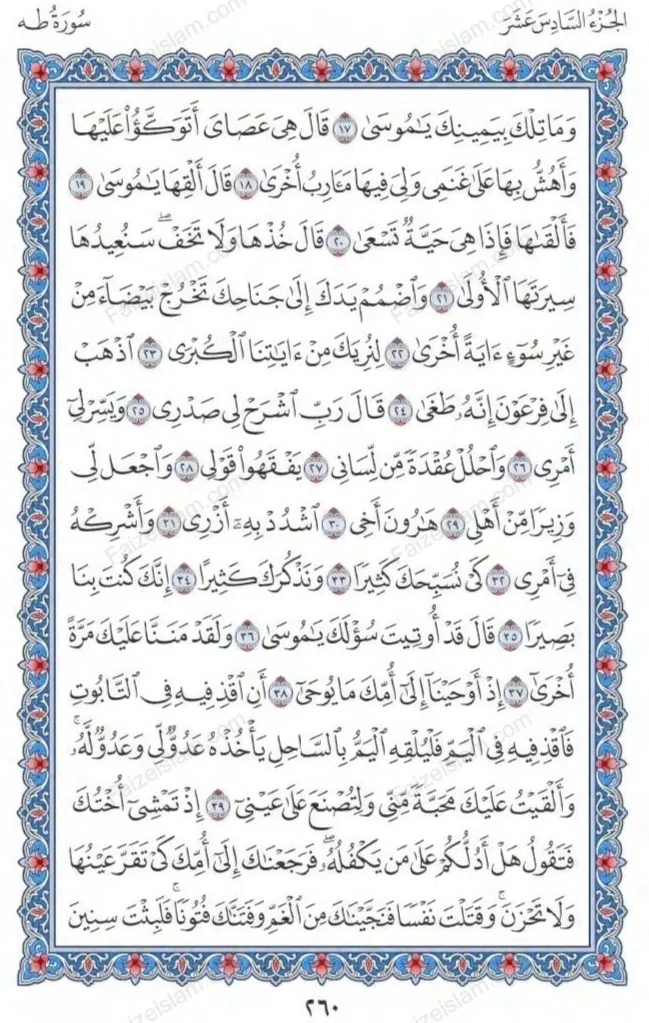 الجُزْءُ السَّادِسَ عَشَرَ
سُورَةُ طه
وَمَا تِلْكَ بِيَمِينِكَ يَٰمُوسَىٰ ١٧ قَالَ هِىَ عَصَاىَ أَتَوَكَّؤُا۟ عَلَيْهَا
وَأَهُشُّ بِهَا عَلَىٰ غَنَمِى وَلِىَ فِيهَا مَـَٔارِبُ أُخْرَىٰ ١٨ قَالَ أَلْقِهَا يَٰمُوسَىٰ ١٩
فَأَلْقَىٰهَا فَإِذَا هِىَ حَيَّةٌ تَسْعَىٰ ٢٠ قَالَ خُذْهَا وَلَا تَخَفْ ۖ سَنُعِيدُهَا
سِيرَتَهَا ٱلْأُولَىٰ ٢١ وَٱضْمُمْ يَدَكَ إِلَىٰ جَنَاحِكَ تَخْرُجْ بَيْضَآءَ مِنْ
غَيْرِ سُوٓءٍ ءَايَةً أُخْرَىٰ ٢٢ لِنُرِيَكَ مِنْ ءَايَٰتِنَا ٱلْكُبْرَى ٢٣ ٱذْهَبْ
إِلَىٰ فِرْعَوْنَ إِنَّهُۥ طَغَىٰ ٢٤ قَالَ رَبِّ ٱشْرَحْ لِى صَدْرِى ٢٥ وَيَسِّرْ لِىٓ
أَمْرِى ٢٦ وَٱحْلُلْ عُقْدَةً مِّن لِّسَانِى ٢٧ يَفْقَهُوا۟ قَوْلِى ٢٨ وَٱجْعَل لِّى
وَزِيرًا مِّنْ أَهْلِى ٢٩ هَٰرُونَ أَخِى ٣٠ ٱشْدُدْ بِهِۦٓ أَزْرِى ٣١ وَأَشْرِكْهُ
فِىٓ أَمْرِى ٣٢ كَىْ نُسَبِّحَكَ كَثِيرًا ٣٣ وَنَذْكُرَكَ كَثِيرًا ٣٤ إِنَّكَ كُنتَ بِنَا
بَصِيرًا ٣٥ قَالَ قَدْ أُوتِيتَ سُؤْلَكَ يَٰمُوسَىٰ ٣٦ وَلَقَدْ مَنَنَّا عَلَيْكَ مَرَّةً
أُخْرَىٰٓ ٣٧ إِذْ أَوْحَيْنَآ إِلَىٰٓ أُمِّكَ مَا يُوحَىٰٓ ٣٨ أَنِ ٱقْذِفِيهِ فِى ٱلتَّابُوتِ
فَٱقْذِفِيهِ فِى ٱلْيَمِّ فَلْيُلْقِهِ ٱلْيَمُّ بِٱلسَّاحِلِ يَأْخُذْهُ عَدُوٌّ لِّى وَعَدُوٌّ لَّهُۥ ۚ
وَأَلْقَيْتُ عَلَيْكَ مَحَبَّةً مِّنِّى وَلِتُصْنَعَ عَلَىٰ عَيْنِىٓ ٣٩ إِذْ تَمْشِىٓ أُخْتُكَ
فَتَقُولُ هَلْ أَدُلُّكُمْ عَلَىٰ مَن يَكْفُلُهُۥ ۖ فَرَجَعْنَٰكَ إِلَىٰٓ أُمِّكَ كَىْ تَقَرَّ عَيْنُهَا
وَلَا تَحْزَنَ ۚ وَقَتَلْتَ نَفْسًا فَنَجَّيْنَٰكَ مِنَ ٱلْغَمِّ وَفَتَنَّٰكَ فُتُونًا ۚ فَلَبِثْتَ سِنِينَ
٢٦٠
Faizeislam.com